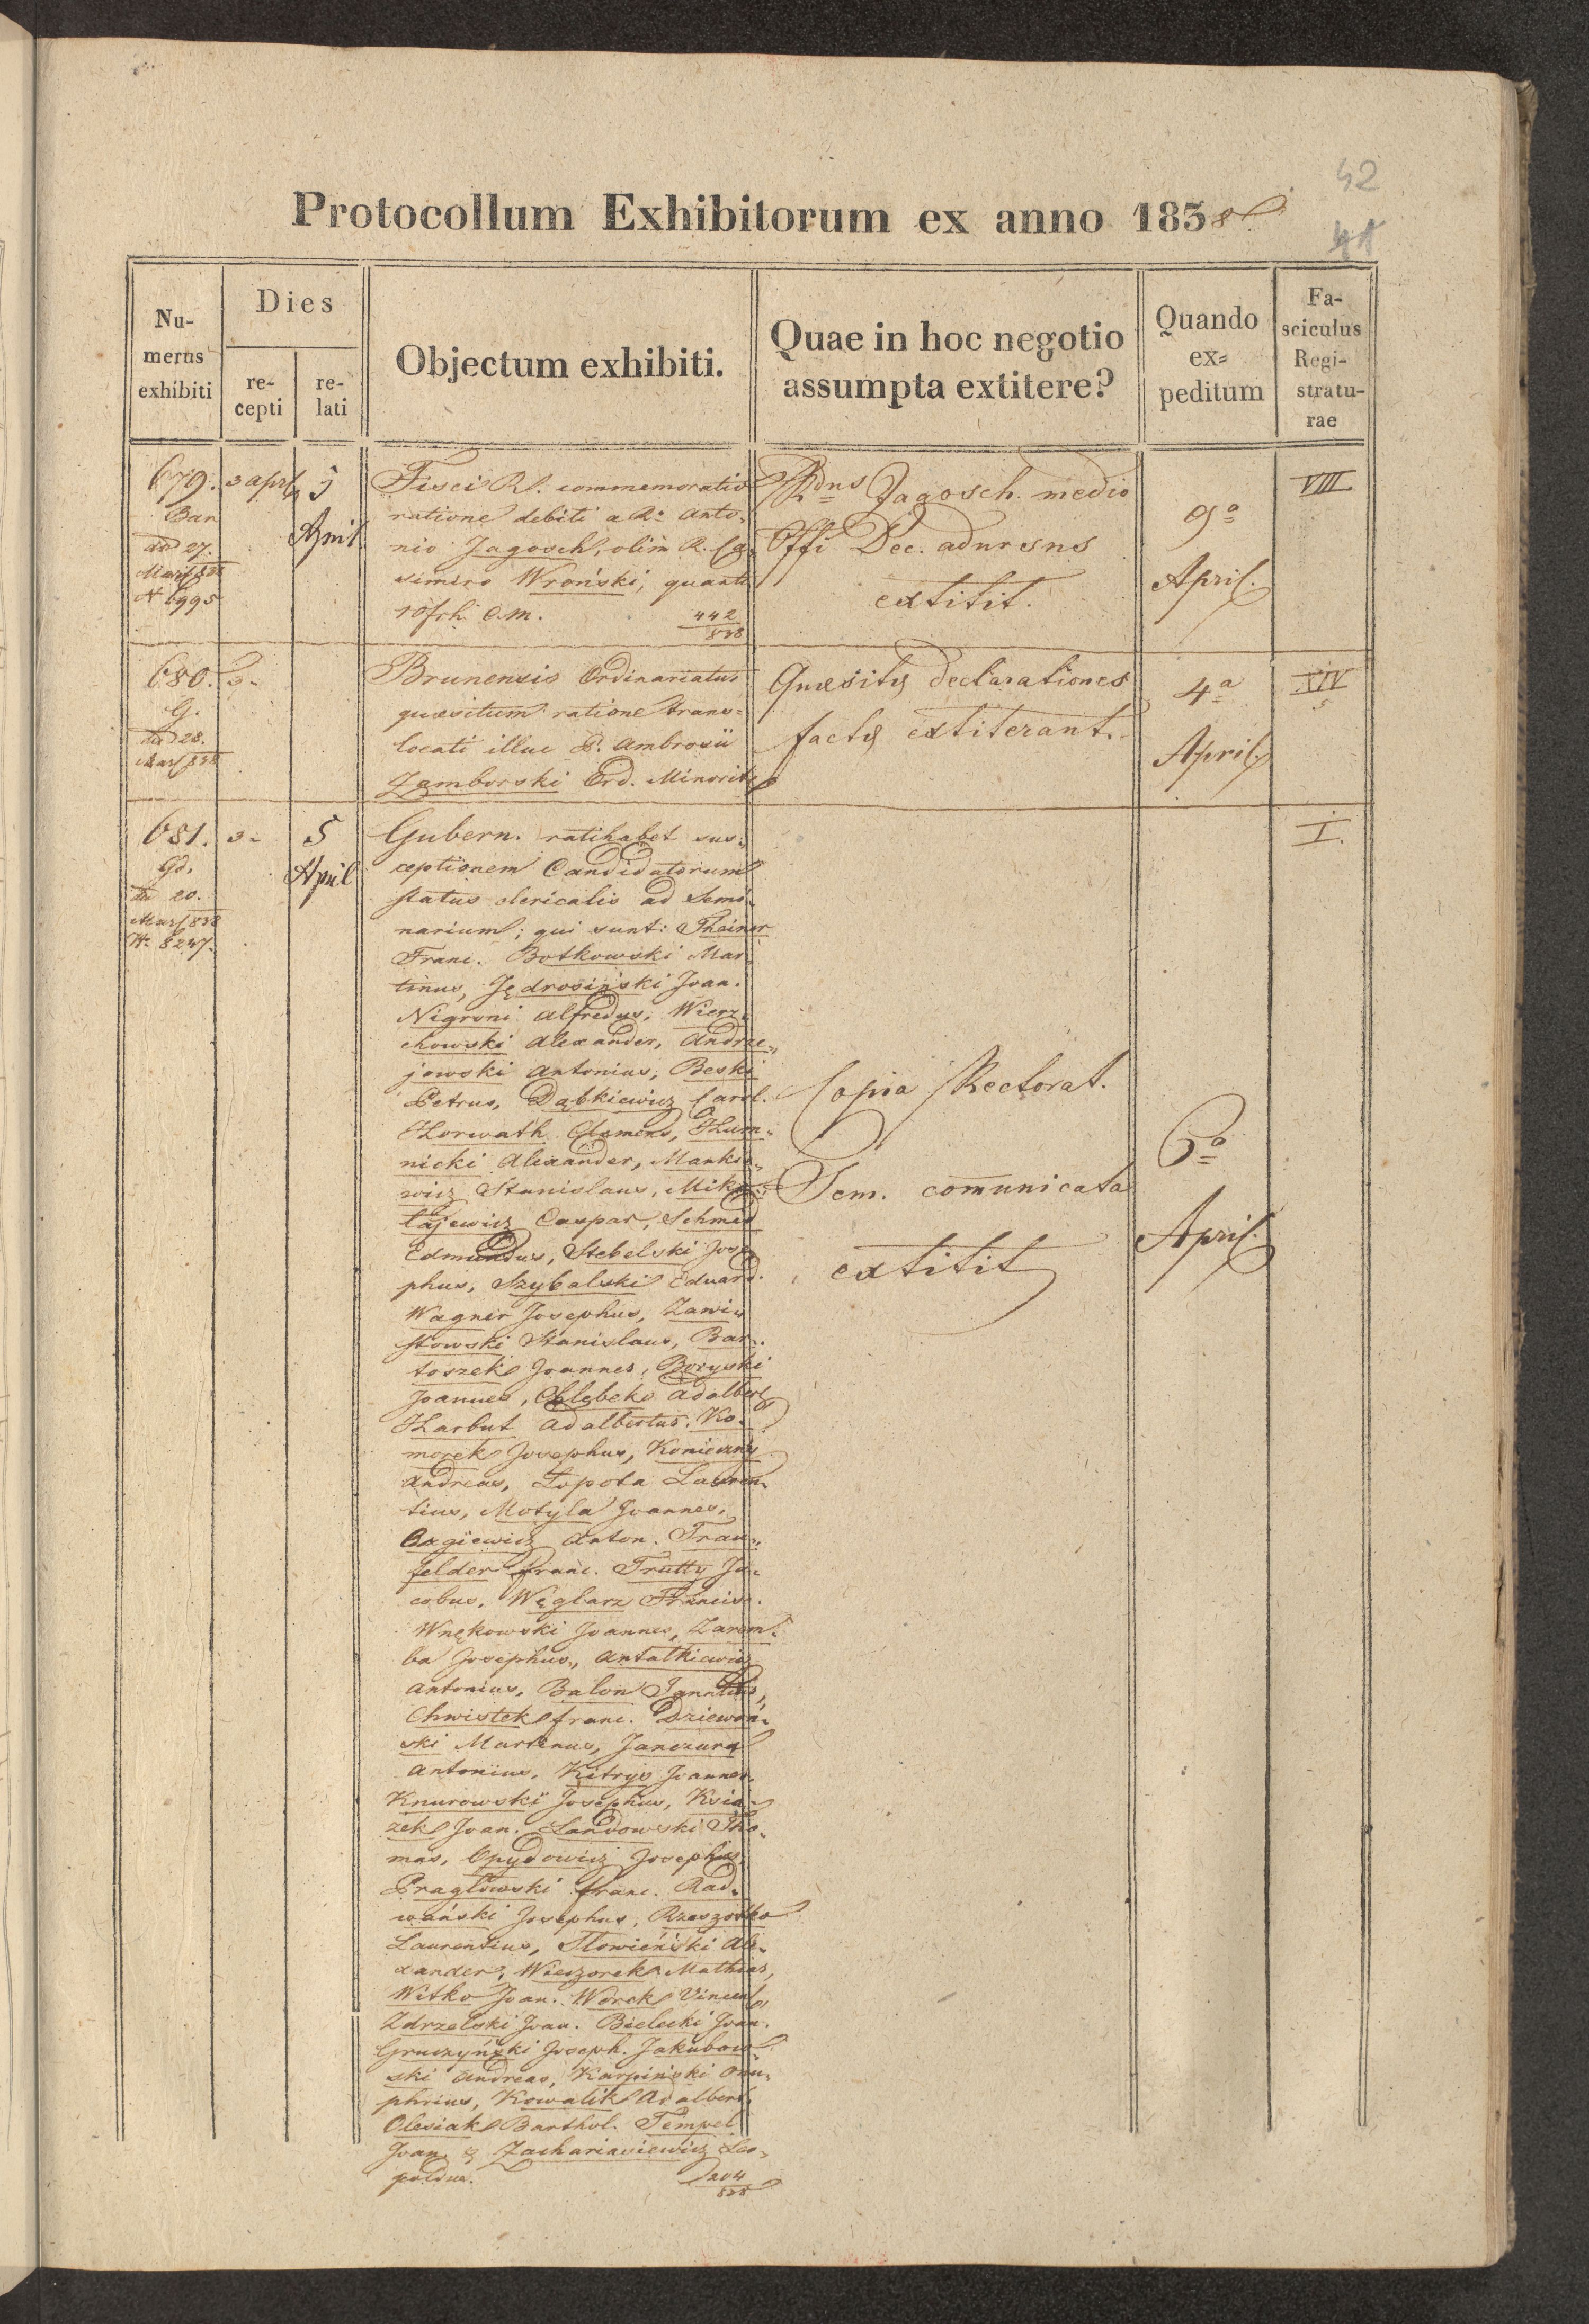 42
41
Protocollum Exhibitorum ex anno 1838
Numerus exhibiti
Dies
recepti
relati
Objectum exhibiti.
Quae in hoc negotio
assumpta extitere?
Quando
ex=
peditum
Fa-
sciculus
Regi-
stratu-
rae
679.
dd 27.
Mart 838
N 6995
3 apr
5
April
Fisci R. commemoratio
ratione debiti a R. Anto-
nio Jagosch, olim R. Ca-
simiro Wroński, quanti
10 frh. C.M.
442
838
Rdns Jagosch. medio
Offi Dec. adursus
extitit.
9a
April.
VIII
680.
G.
dd 28.
Mart 838
3-
Brunensis Ordinariatus
quaesitum ratione trans-
locati illuc P. Ambrosii
Zamborski Ord. Minorit
Quaesitae declarationes
factae extiterant.
4a
April.
XIV
5
681.
Gd.
dd 20.
Mart 838
N. 8247.
3-
5
April
Gubern. ratihabet sus-
ceptionem Candidatorum
status clericalis ad Semi-
narium; qui sunt: Theiner
Franc. Botkowski Mar-
tinus, Jędrosiński Joan.
Nigroni Alfredus, Wierz-
chowski Alexander, Andrze-
jowski Antonius, Beski
Petrus, Dąbkiewicz Carol.
Horwath Clemens, Hum-
nicki Alexander, Mankie-
wicz Stanislaus, Miko-
łajewicz Caspar, Schmid
Edmundus, Stebelski Jose-
phus, Szybalski Eduard.
Wagner Josephus, Zawi-
stowski Stanislaus, Bar-
toszek Joannes, Boryski
Joannes, Chlebek Adalbert
Harbut Adalbertus, Ko-
morek Josephus, Konieczny
Andreas, Łopota Lauren-
tius, Motyla Joannes,
Oxgiewicz Anton. Trau-
felder Franc. Trutty Ja-
cobus, Węglarz Francisc.
Wnękowski Joannes, Zarem-
ba Josephus, Antałkiewicz
Antonius, Balon Ignatius,
Chwistek Franc. Dziewoń-
ski Martinus, Janczura
Antonius, Kitrys Joannes
Knurowski Josephus, Ksią-
zek Joan. Landowski Tho-
mas, Opydowicz Josephus
Pragłowski Franc. Rad-
wański Josephus, Rzeszotko
Laurentius, Słowieński Ale-
xander, Wieczorek Mathias,
Witko Joan. Worek Vincent,
Zdrzelski Joan. Bielecki Joan.
Gruczyński Joseph. Jakubow-
ski Andreas, Karpiński Onu-
phrius, Kowalik Adalbert,
Olesiak Barthol. Tempel
Joan. & Zachariasiewicz Leo-
poldus.
204
838
Copia Rectorat.
Sem. comunicata
extitit
6a
April.
I.